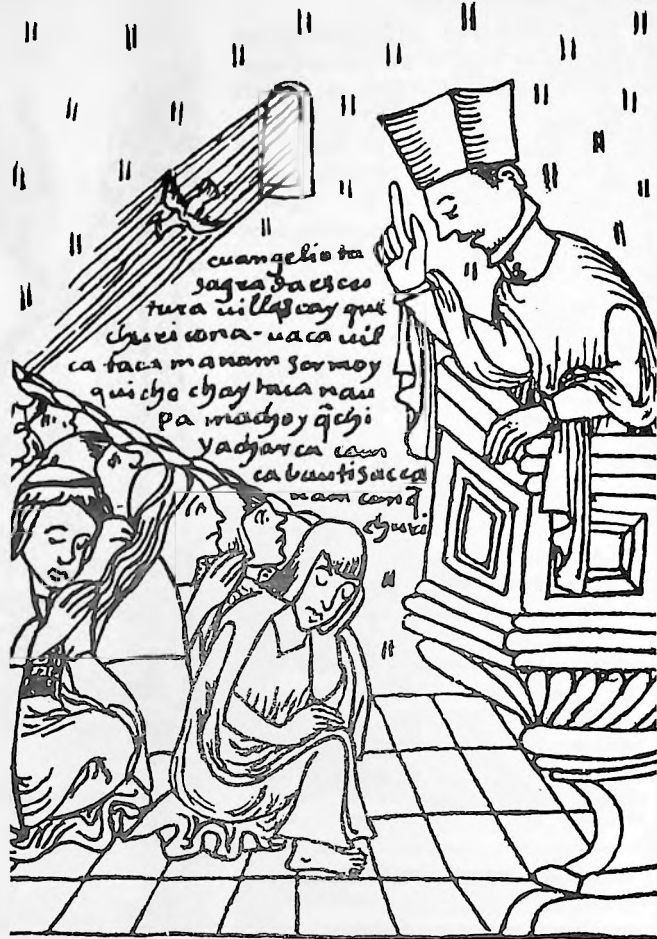 euangelio ta
sagrada escri
tura uillascayqui
churicona - uaca uil
ca taca manam sermoy
quicho chay taca nau
pa machoyq̃chi
yacharca cam
ca bautisacca
nam canq̃
churi